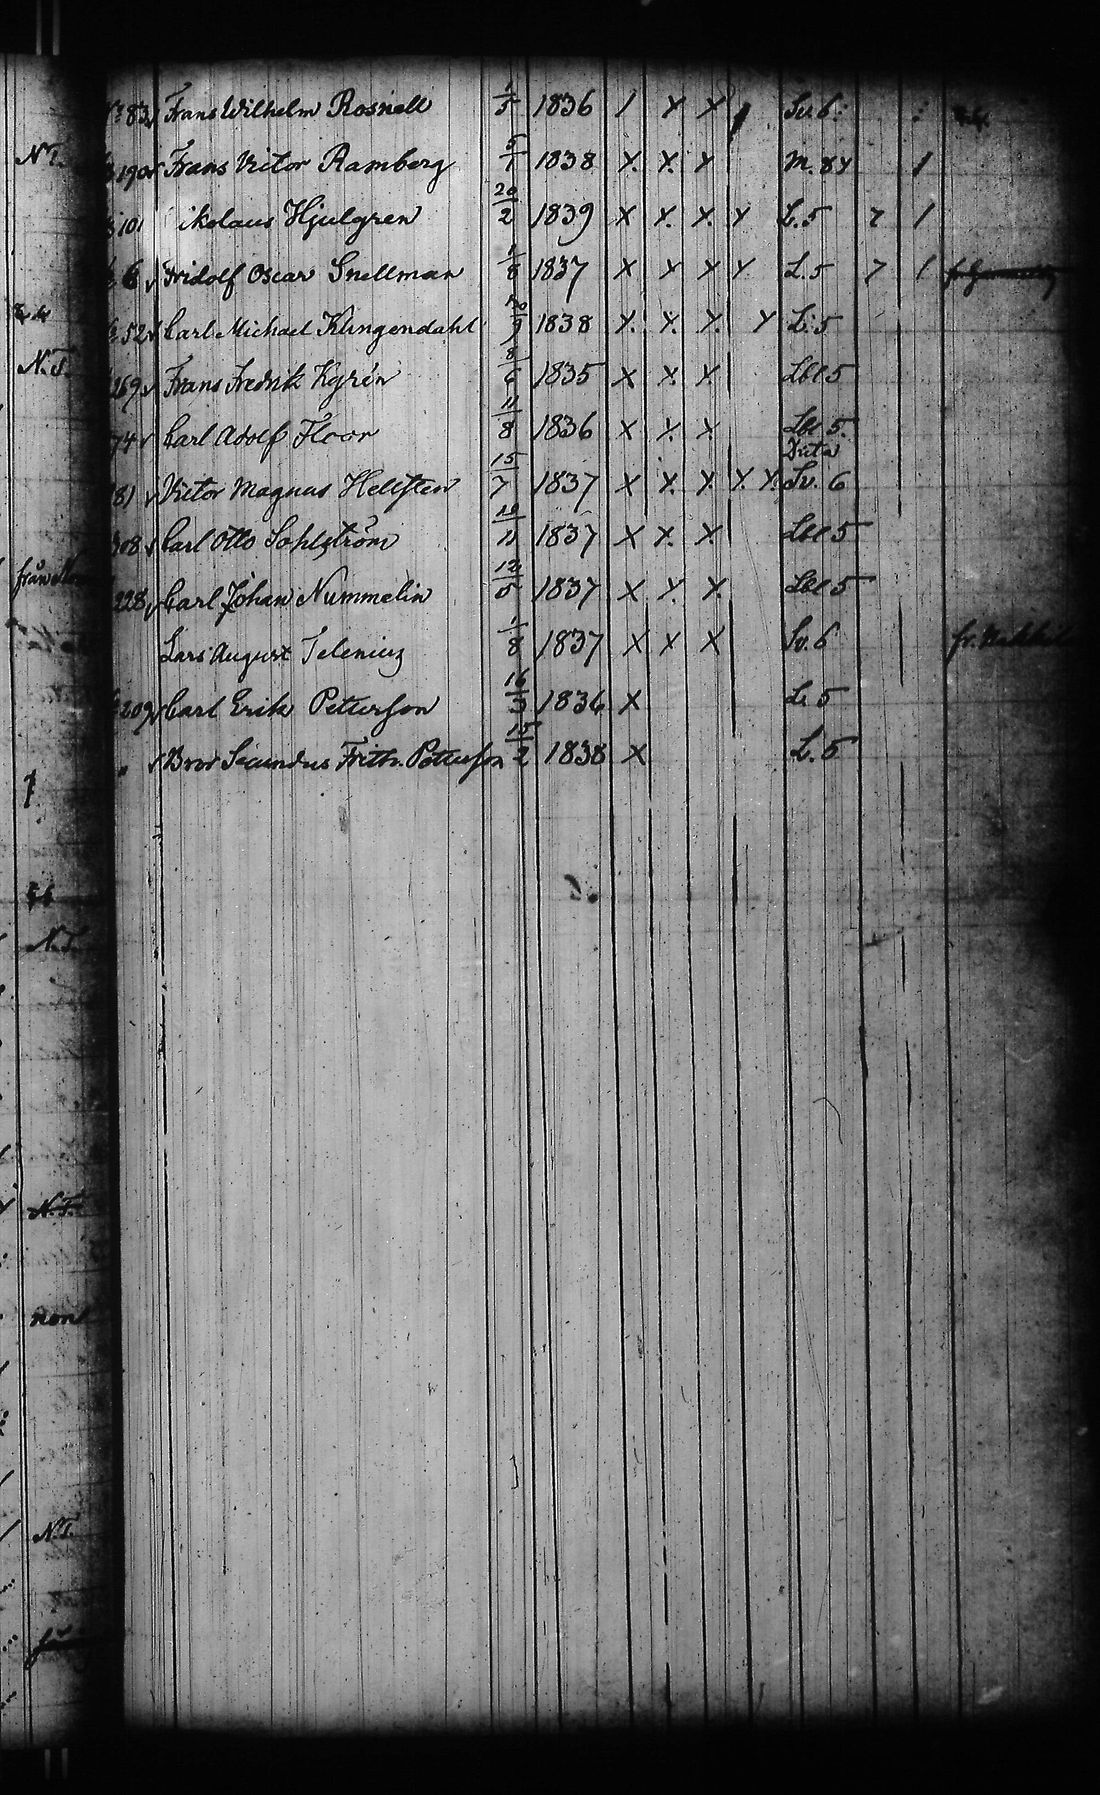 № 83 Frans Wilhelm Rosnell 1/5 1836 / x x Sv. 6:
N.T. 190 Frans Victor Ramberg 5/1 1838 x. x. x M. 84 1
101 ikolaus Hjulgren 20/2 1839 x x. x. x L. 5 7 1
6 Fridolf Oscar Snellman 1/8 1837 x x x x L. 5 7 1
52 Carl Michael Klingendahl 30/9 1838 x. x. x. x L. 5
N.T. 269 Frans Fredrik Kyrén 8/6 1835 x x. x Lbl 5
74 Carl Adolf Floor 11/8 1836 x x. x Lbl 5.
81 Victor Magnus Helsten 15/7 1837 x x. x x x. Sv. 6
308 Carl Otto Sohlström 10/11 1837 x x. x Lbl 5
från
228 Carl Johan Nummelin 12/5 1837 x x. x. Lbl 5
Lars August Selenius 1/8 1837 x x x Sv. 6 fr.
209 Carl Erik Petterson 16/3 1836 x L. 5
Bror Secundus Frith. Petterson 1838 x L. 5
N.T.
N.T.
N.T.